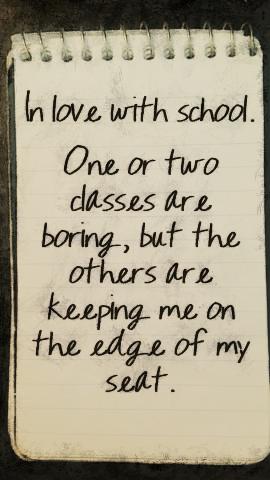 In love with school.
One or two
classes are
boring, but the
others are
keeping me on
the edge of my
seat.